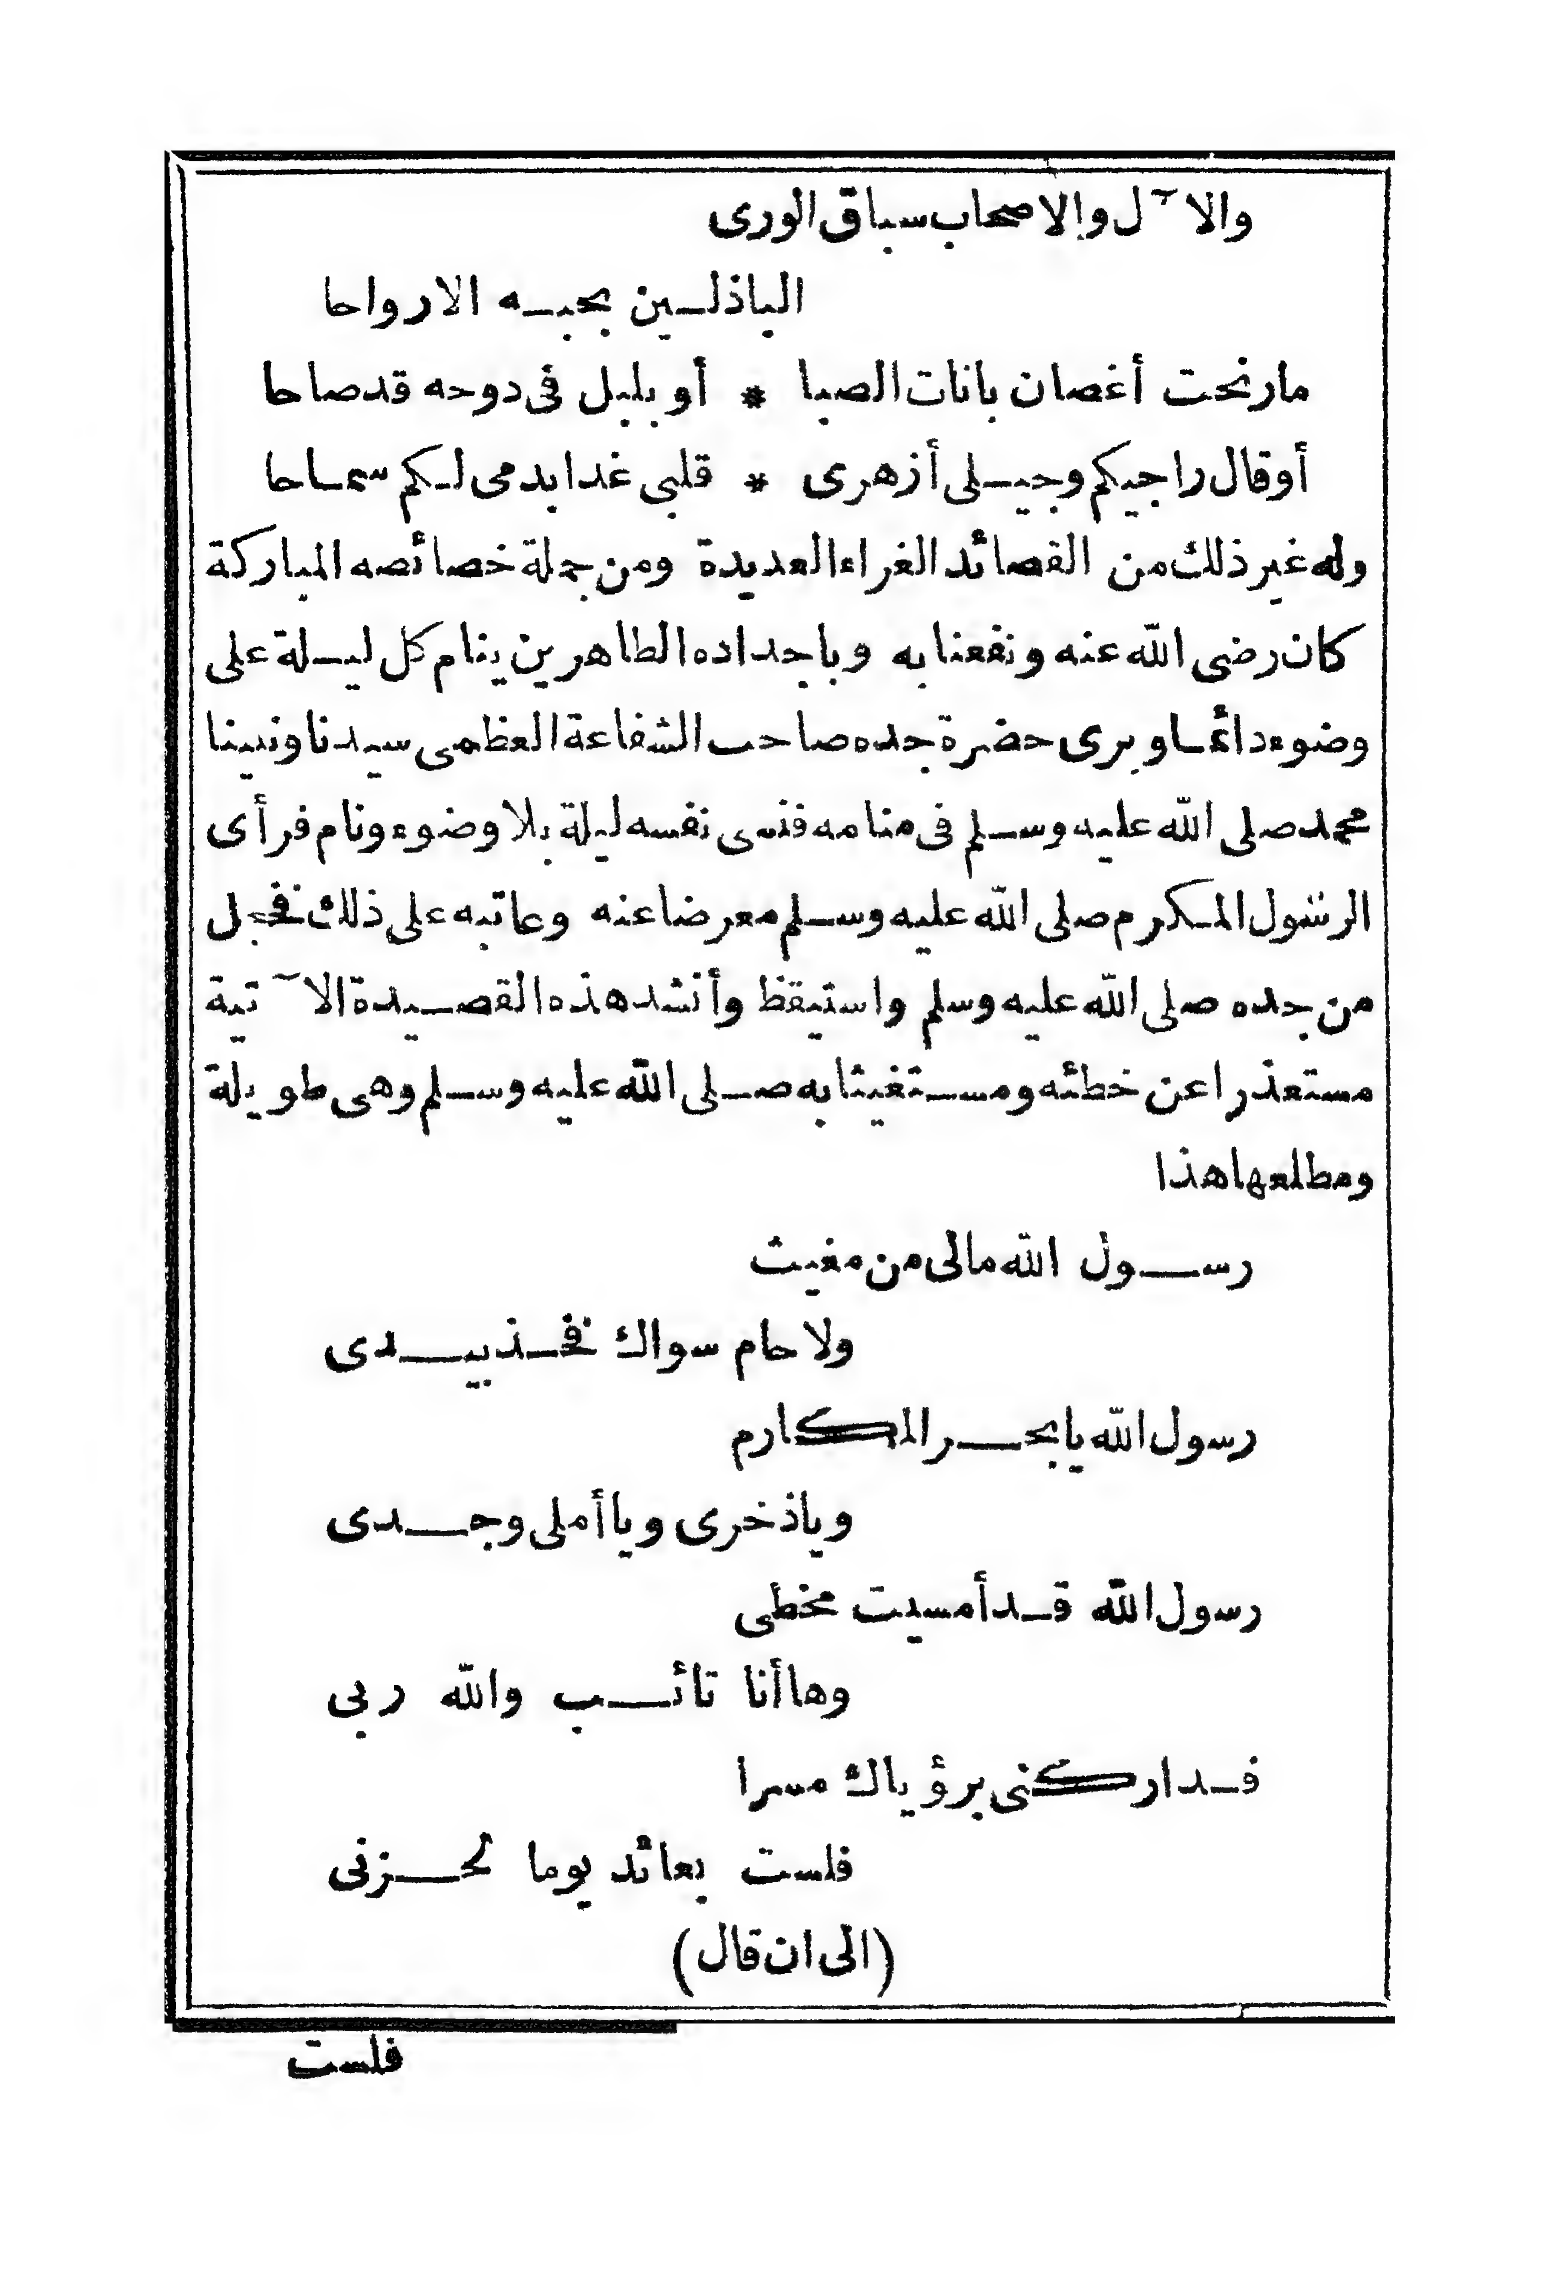 والآل والاصحاب سباق الورى
الباذلين بحبه الارواحا
مارنحت أغصان بانات الصبا * أو بلبل فى دوحه قد صاحا
أوقال راجيكم وجيلى أزهرى * قلبى غدا بدمى لكم سماحا
وله غير ذلك من القصائد الغراء العديدة ومن جملة خصائصه المباركة
كان رضى الله عنه ونفعنا به وباجداده الطاهرين ينام كل ليلة على
وضوء دائما ويرى حضرة جده صاحب الشفاعة العظمى سيدنا ونبينا
محمد صلى الله عليه وسلم فى منامه فنسى نفسه ليلة بلا وضوء ونام فرأى
الرسول المكرم صلى الله عليه وسلم معرضا عنه وعاتبه على ذلك فخجل
من جده صلى الله عليه وسلم واستيقظ وأنشد هذه القصيدة الآتية
مستعذرا عن خطئه ومستغيثا به صلى الله عليه وسلم وهى طويلة
ومطلعها هذا
رسول الله مالى من مغيث
ولا حام سواك فخذ بيدى
رسول الله يا بحر المكارم
وياذخرى ويا أملى وجدى
رسول الله قد أمسيت مخطى
وها أنا تائب والله ربى
فداركنى برؤياك مسرا
فلست بعائد يوما لحزنى
(الى ان قال)
فلست